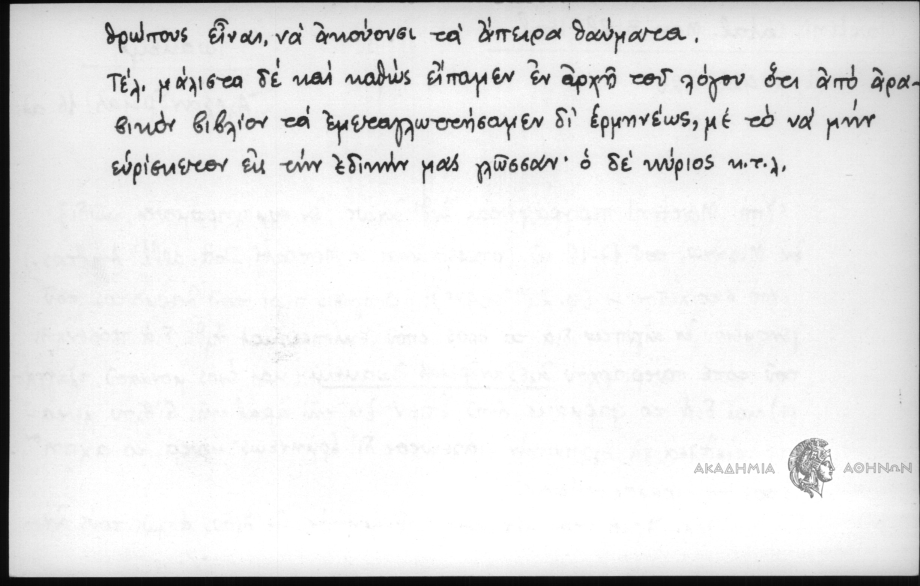 θρώπους εἶναι, νὰ ἀκούουσι τὰ ἄπειρα θαύματα.
Τέλ. μάλιστα δὲ καὶ καθὼς εἴπαμεν ἐν ἀρχῇ τοῦ λόγου ὅτι ἀπὸ ἀρα-
βικὸν βιβλίον τὰ ἐμεταγλωττήσαμεν δι' ἑρμηνέως, μὲ τὸ νὰ μὴν
εὑρίσκετον εἰς τὴν ἐδικήν μας γλῶσσαν· ὁ δὲ κύριος κ.τ.λ.
ΑΚΑΔΗΜΙΑ ΑΘΗΝΩΝ